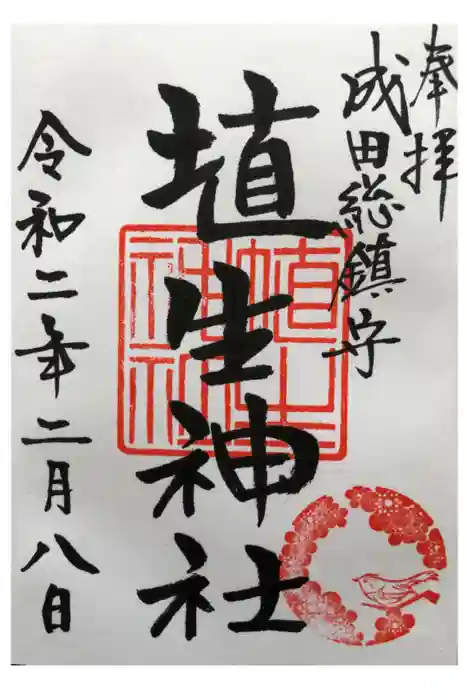 奉拝
成田総鎮守
埴生神社
令和二年二月八日